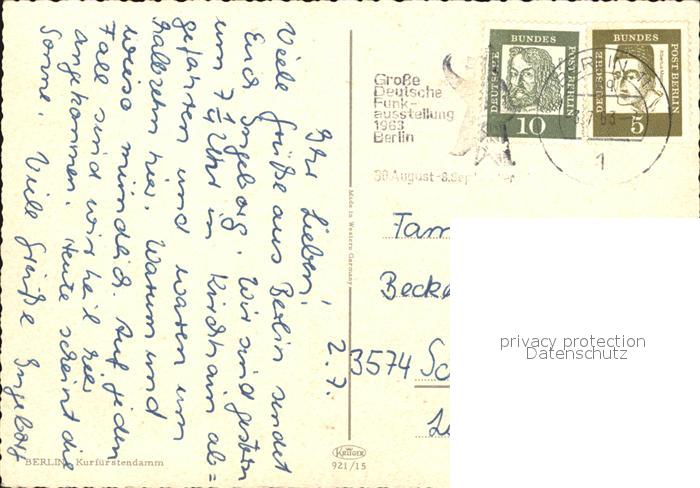 Ihr Lieben! 2.7.
Viele Grüße aus Berlin sendet
Euch Ingeborg. Wir sind gestern
um 7¼ Uhr in Kirchhain ab=
gefahren und waren um
halbzehn hier. Warum und
wieso mündlich. Auf jeden
Fall sind wir heil hier
angekommen. Heute scheint die
Sonne. Viele Grüße Ingeborg
BERLIN, Kurfürstendamm
Made in Western Germany
KRÜGER
921/15
Große
Deutsche
Funk-
ausstellung
1963
Berlin
30.August-8.September
DEUTSCHE BUNDESPOST BERLIN
10
DEUTSCHE BUNDESPOST BERLIN
5
BERLIN
63
1
Fam
Becke
3574 Sc
privacy protection
Datenschutz